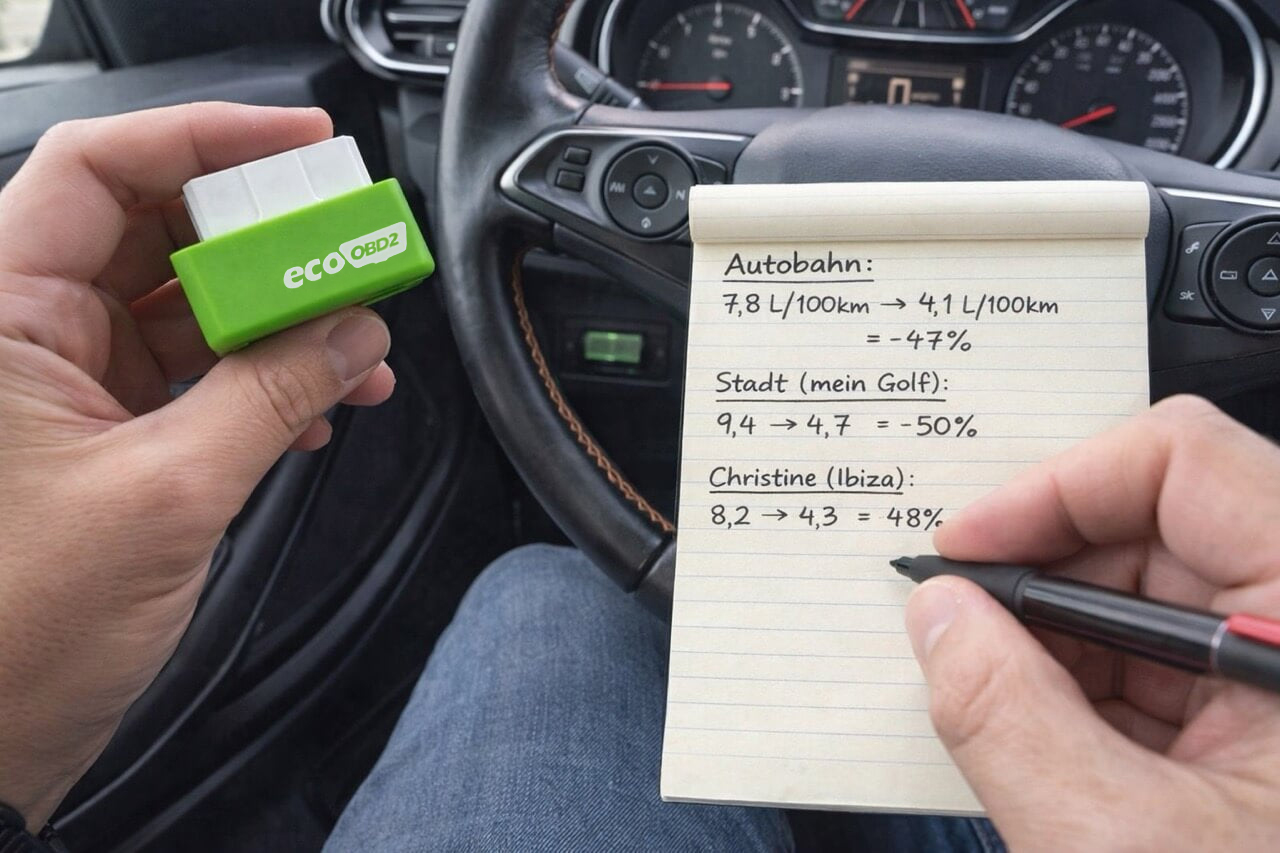 eco OBD2
Autobahn:
7,8 L/100km → 4,1 L/100km
= -47%
Stadt (mein Golf):
9,4 → 4,7 = -50%
Christine (Ibiza):
8,2 → 4,3 = 48%